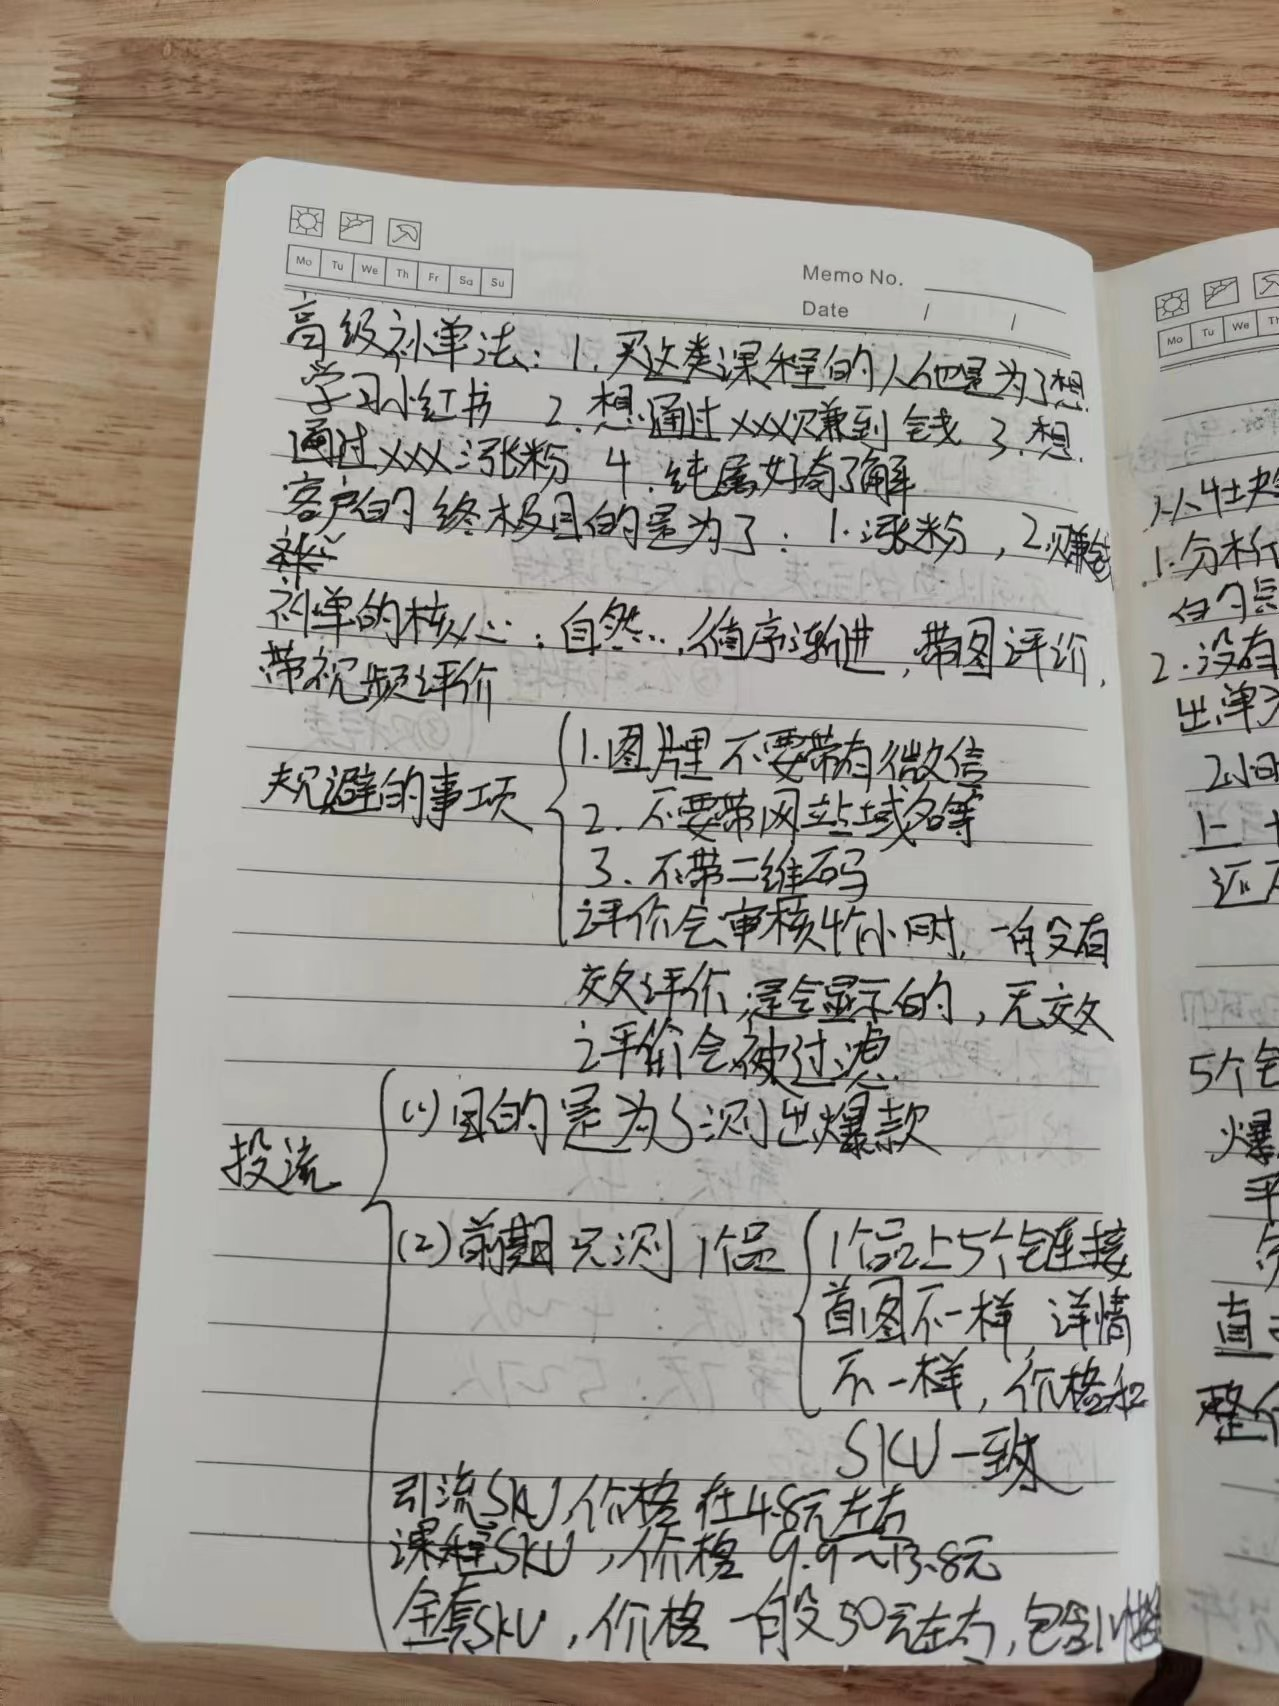 Mo Tu We Th Fr Sa Su
Memo No.
Date / /
高级补单法：1.买这类课程的人他是为了想
学习小红书 2.想通过xxx赚到钱 3.想
通过xxx涨粉 4.纯属好奇了解
客户的终极目的是为了：1.涨粉，2.赚钱
补单的核心：自然，循序渐进，带图评价，
带视频评价
规避的事项
1.图片里不要带有微信
2.不要带网站域名等
3.不带二维码
评价会审核4个小时，一般会有
效评价是会显示的，无效
评价会被过滤
投流
(1)目的是为了测出爆款
(2)前期只测1个品
1个品上5个链接
首图不一样，详情
不一样，价格和
SKU一致
引流SKU，价格在4.8元左右
课程SKU，价格9.9~13.8元
全套SKU，价格一般50元左右，包含
Mo Tu We Th
1.分析
2.没有
出单
2小时
上
还
5个
爆
平
直
整个